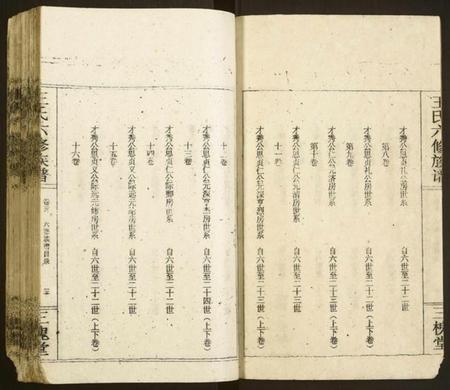 王氏六修族谱
三槐堂
才秀公思贞礼公房世系 自六世至二十二世
第八卷
才秀公思贞礼公房世系 自六世至二十二世
第九卷
才秀公仁公元济房世系 自六世至二十三世
第十卷
才秀公思贞仁公元济房世系 自六世至二十三世
十一卷
才秀公思贞仁公元深亨列房世系 自六世至二十三世(上下卷)
十二卷
才秀公思贞仁公元深亨 房世系 自六世至二十四世(上下卷)
十三卷
才秀公思贞仁公元 房世系 自六世至二十二世
十四卷
才秀公思贞义公际远元 房世系 自六世至二十二世
十五卷
才秀公思贞义公际远元 房世系 自六世至二十二世(上下卷)
十六卷
王氏六修族谱
卷首 目录
三槐堂